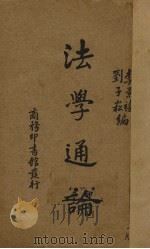 李景禧
劉子崧編
法學通論
商務印書館發行